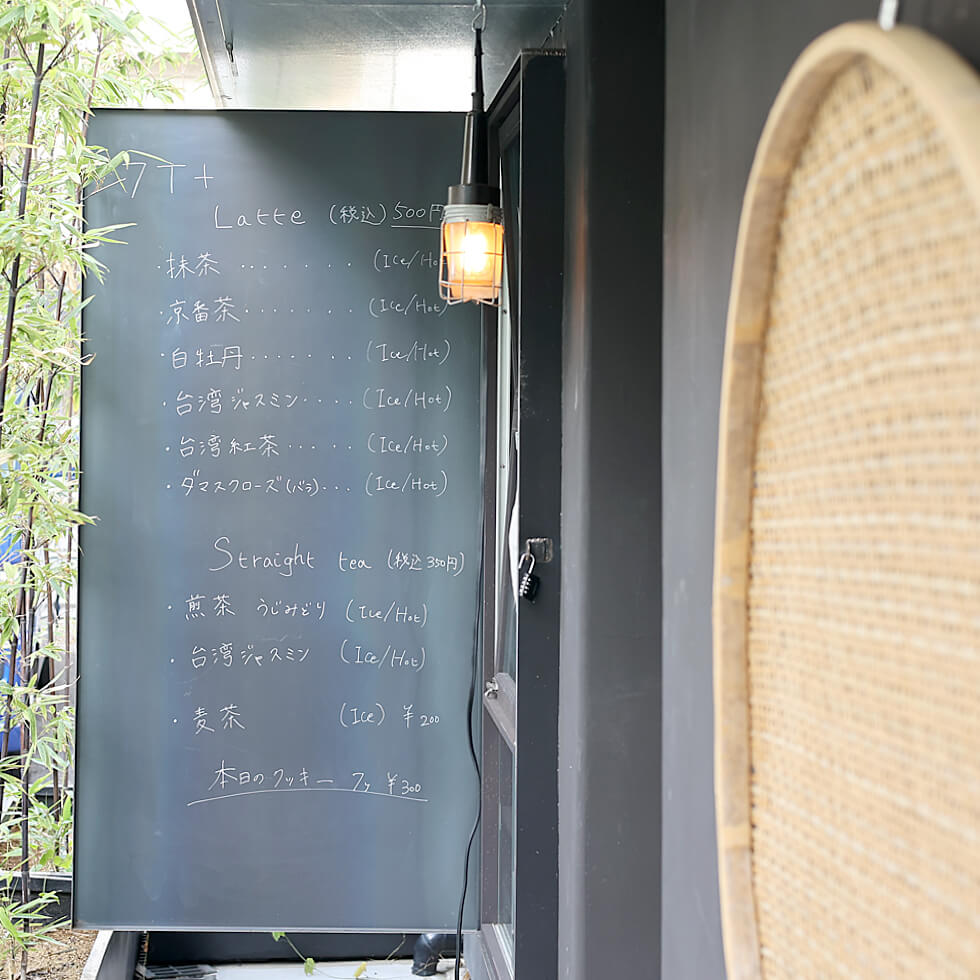 Latte (税込) 500円
・抹茶 ........ (Ice/Hot
・京番茶 ....... (Ice/Hot)
・白牡丹 ....... (Ice/Hot)
・台湾ジャスミン .... (Ice/Hot)
・台湾紅茶 ..... (Ice/Hot)
・ダマスクローズ(バラ) ... (Ice/Hot)
Straight tea (税込350円)
・煎茶 うじみどり (Ice/Hot)
・台湾ジャスミン (Ice/Hot)
・麦茶 (Ice) ¥200
本日のクッキー ¥300